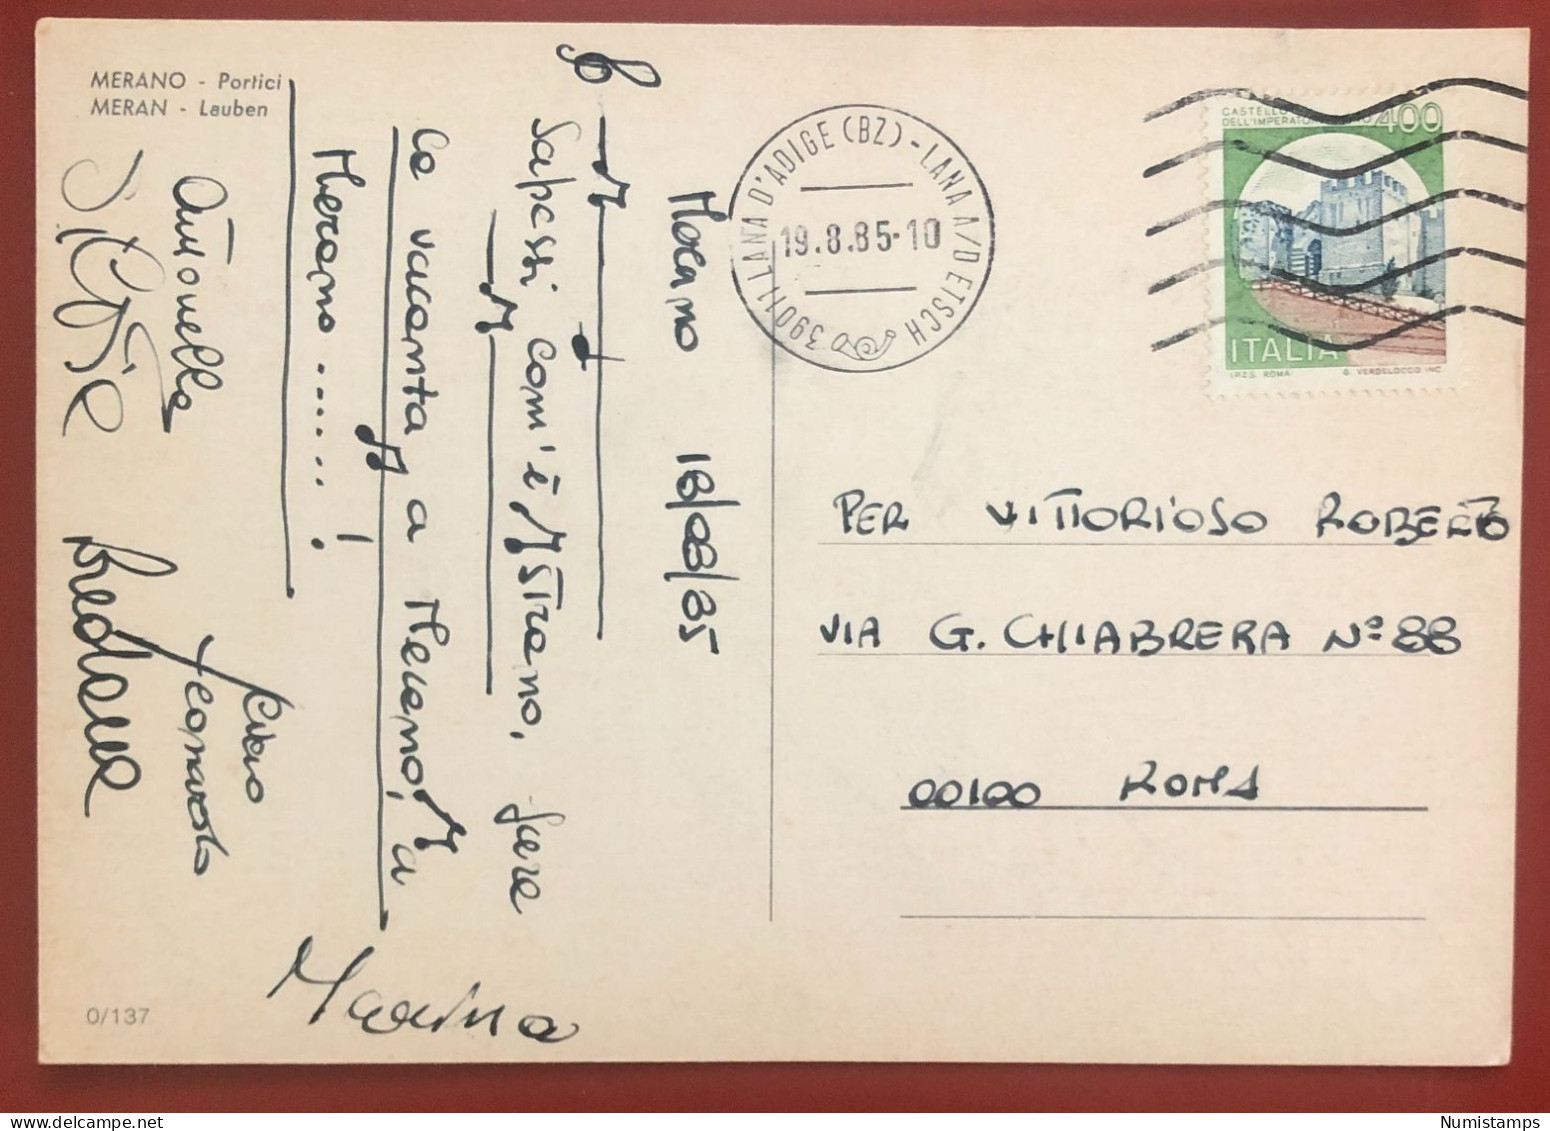 MERANO - Portici
MERAN - Lauben
Merano 18/08/85
Sapessi com'è strano, fare
la vacanta a Merano, a
Merano ...... !
Antonella
Marina
0/137
39011 LANA D'ADIGE (BZ) - LANA A/D ETSCH
19.8.85-10
CASTELLO
DELL'IMPERATO
400
ITALIA
I.P.Z.S. ROMA
G. VERDELOCCO INC.
PER VITTORIOSO ROBERTO
VIA G. CHIABRERA N° 88
00100 ROMA
Numistamps